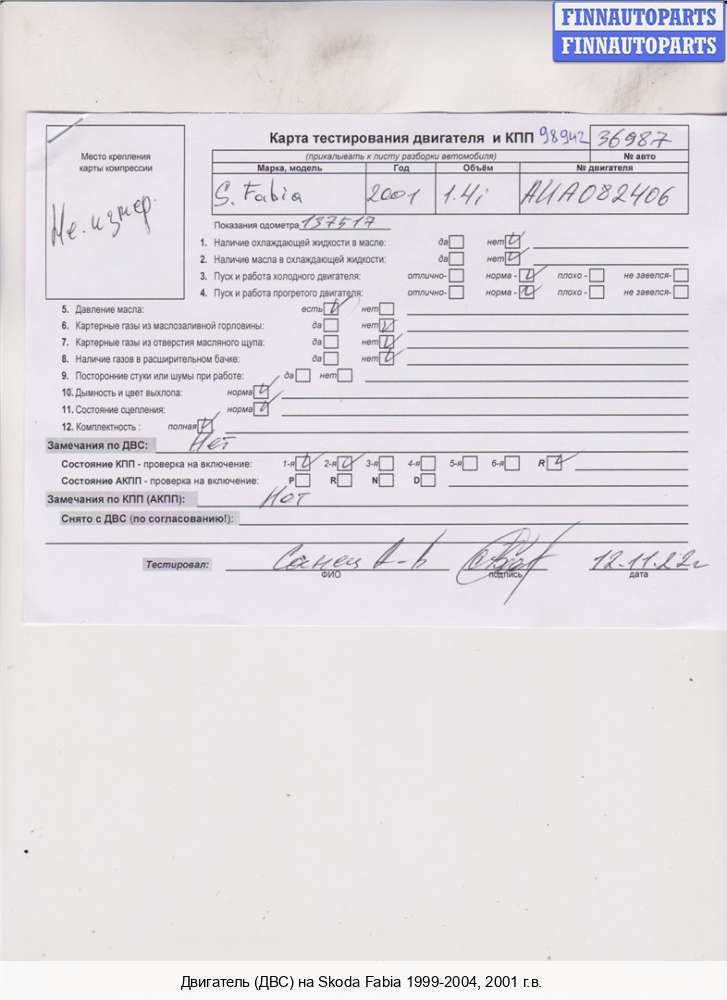 FINNAUTOPARTS
FINNAUTOPARTS
Карта тестирования двигателя и КПП 98942 36987
(прикалывать к листу разборки автомобиля) № авто
Место крепления
карты компрессии
Не измер.
Марка, модель Год Объём № двигателя
S. Fabia 2001 1.4i AUA082406
Показания одометра 137517
1. Наличие охлаждающей жидкости в масле: да нет
2. Наличие масла в охлаждающей жидкости: да нет
3. Пуск и работа холодного двигателя: отлично- норма - плохо - не завелся-
4. Пуск и работа прогретого двигателя: отлично- норма - плохо - не завелся-
5. Давление масла: есть нет
6. Картерные газы из маслозаливной горловины: да нет
7. Картерные газы из отверстия масляного щупа: да нет
8. Наличие газов в расширительном бачке: да нет
9. Посторонние стуки или шумы при работе: да нет
10. Дымность и цвет выхлопа: норма
11. Состояние сцепления: норма
12. Комплектность : полная
Замечания по ДВС: Нет
Состояние КПП - проверка на включение: 1-я 2-я 3-я 4-я 5-я 6-я R
Состояние АКПП - проверка на включение: P R N D
Замечания по КПП (АКПП): Нет
Снято с ДВС (по согласованию!):
Тестировал: 12.11.22г
ФИО подпись дата
Двигатель (ДВС) на Skoda Fabia 1999-2004, 2001 г.в.